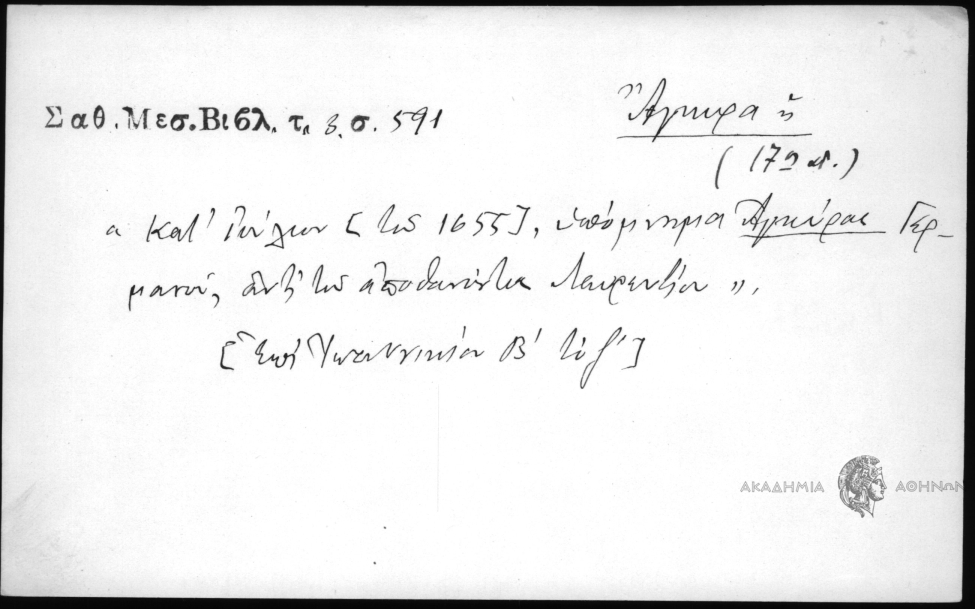 Σαθ. Μεσ. Βιβλ. τ. 3. σ. 591
Ἄγκυρα ἡ
(17ος αἰ.)
« Κατ' Ἰούλιον [τοῦ 1655], ὑπόμνημα Ἀγκύρας Γερ-
μανοῦ, ἀντὶ τοῦ ἀποθανόντος Λαυρεντίου ».
[Ἐπὶ Ἰωαννικίου Β' τὸ ζ']
ΑΚΑΔΗΜΙΑ ΑΘΗΝΩΝ